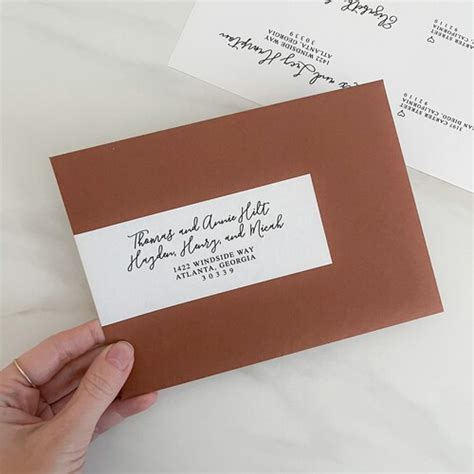 Thomas and Annie Hilt
Hayden, Henry, and Micah
1422 WINDSIDE WAY
ATLANTA, GEORGIA
30339
and Lucy Hampton
1422 WINDSIDE WAY
ATLANTA, GEORGIA
30339
Elizabeth
3197 CARTER STREET
SAN DIEGO,
92110